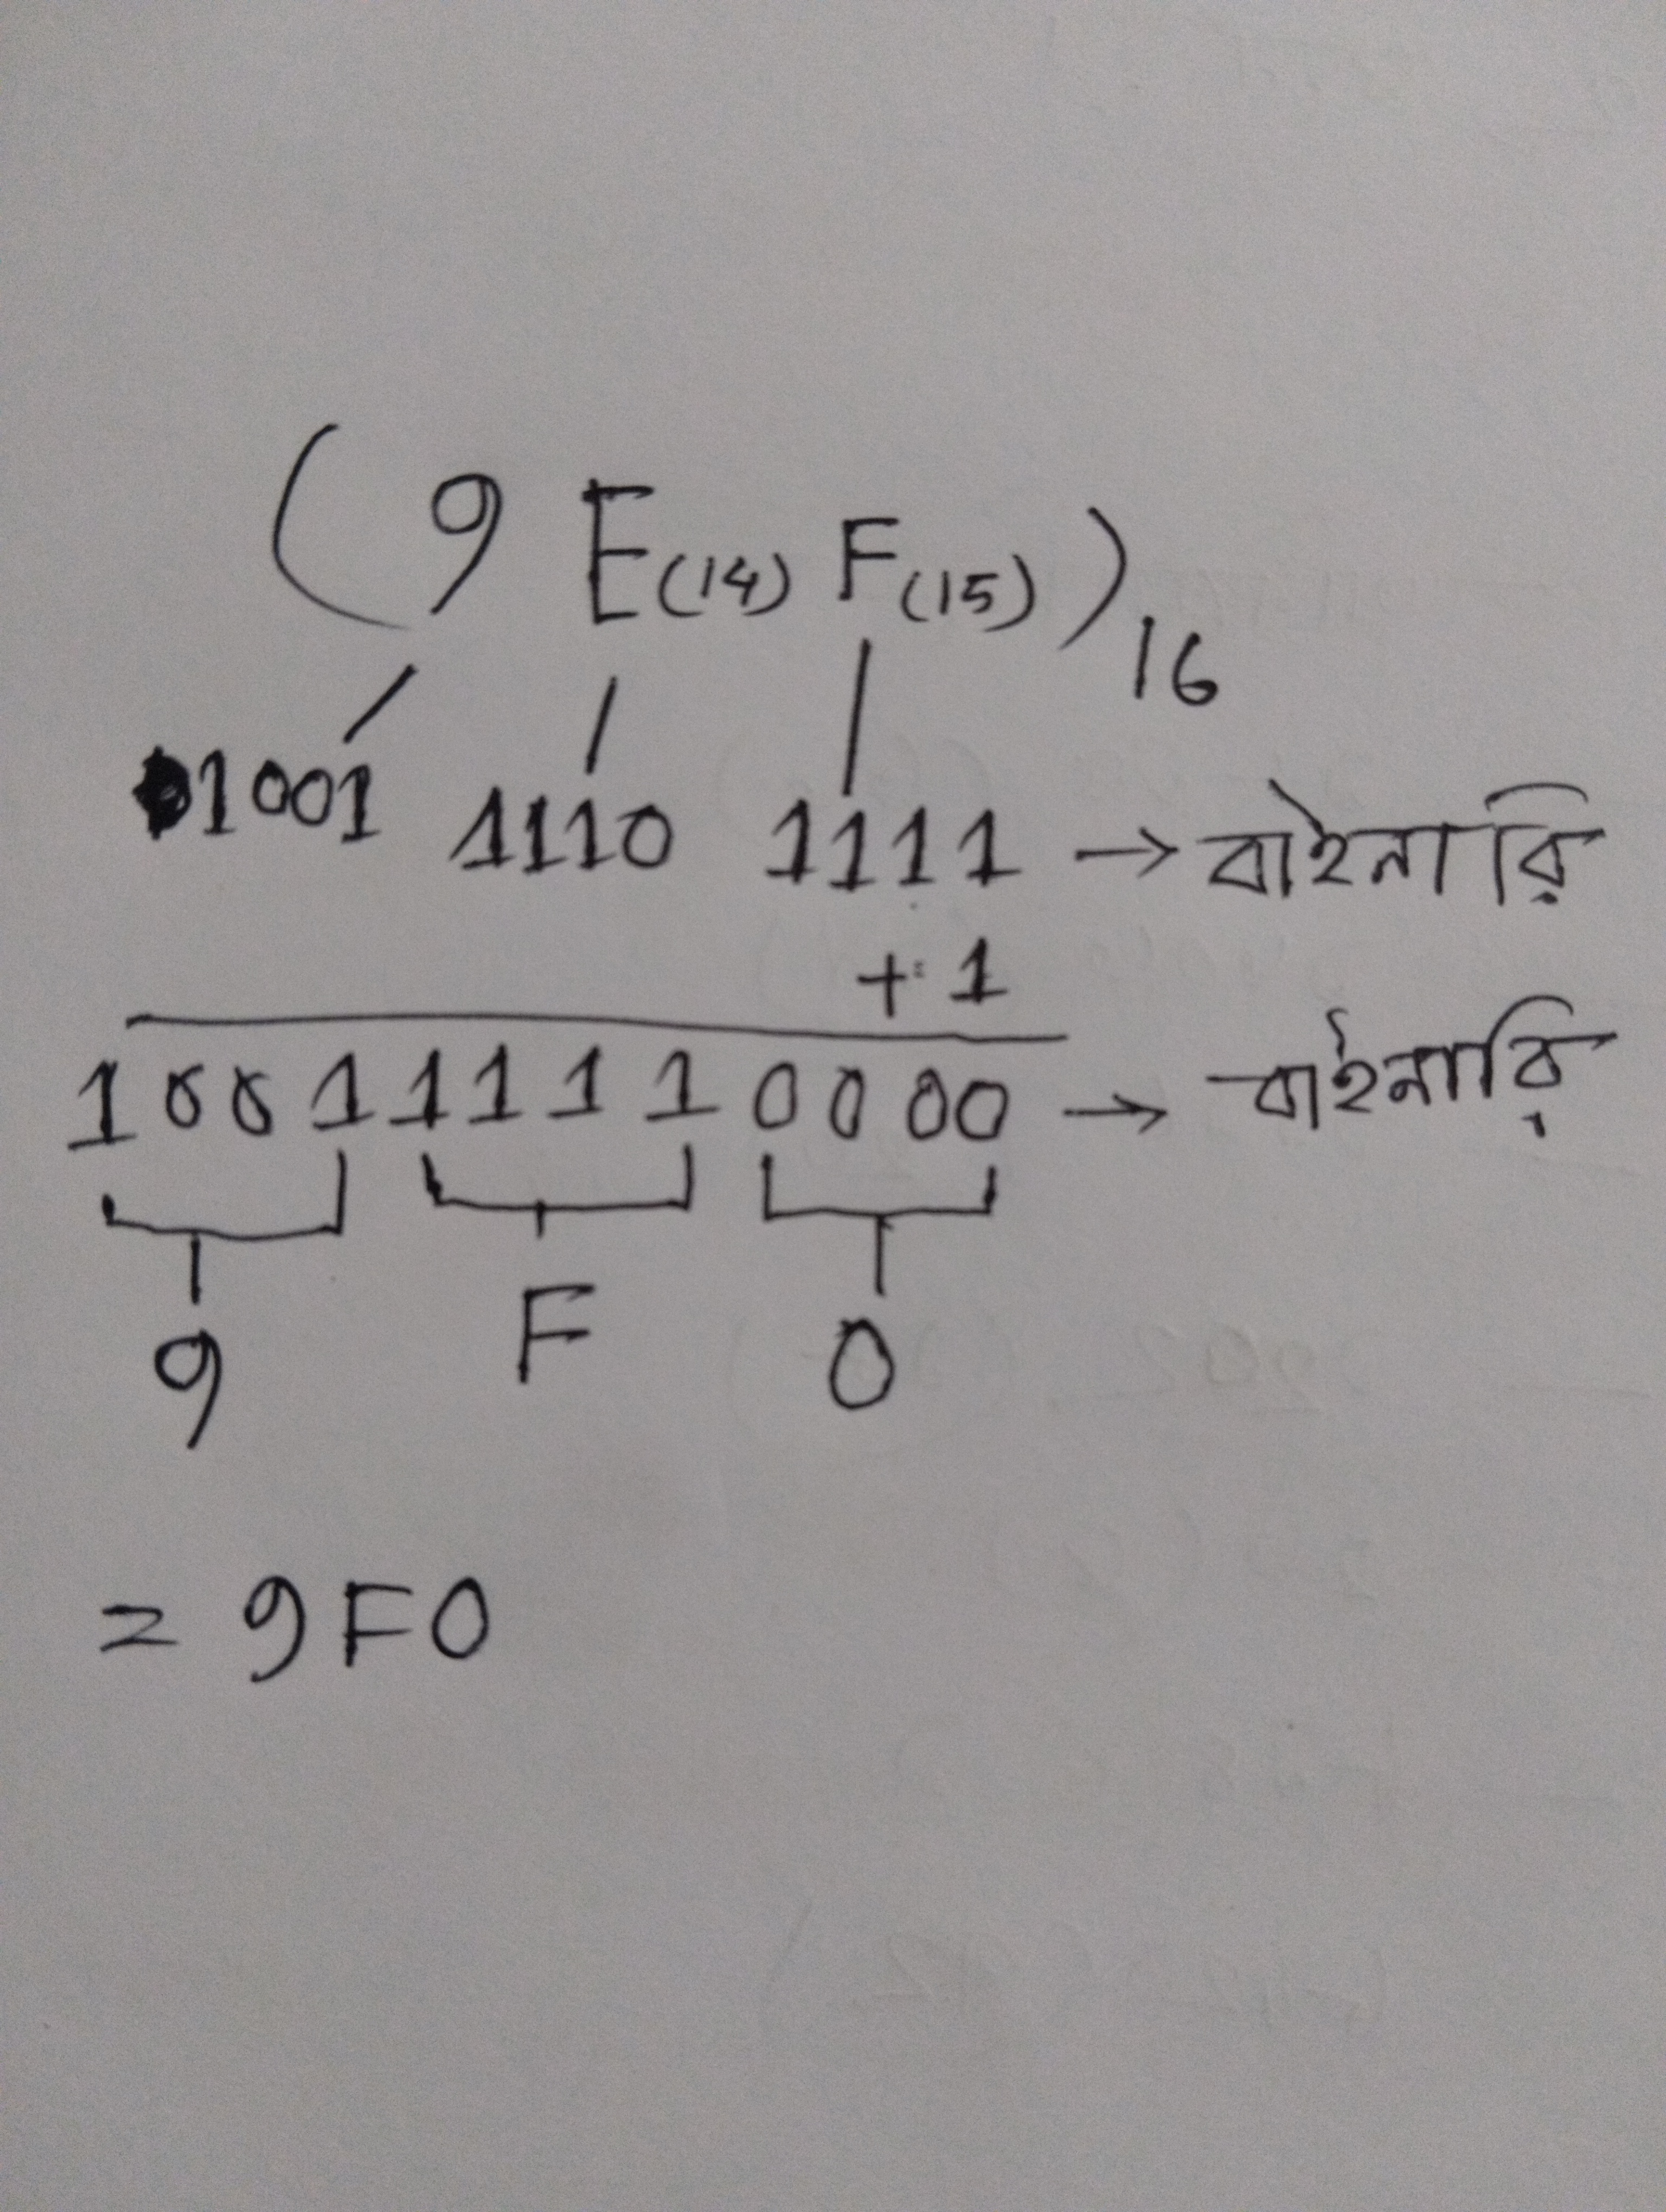 (9 E(14) F(15))16
1001 1110 1111 → বাইনারি
+ 1
1001 1111 0000 → বাইনারি
9 F 0
= 9F0